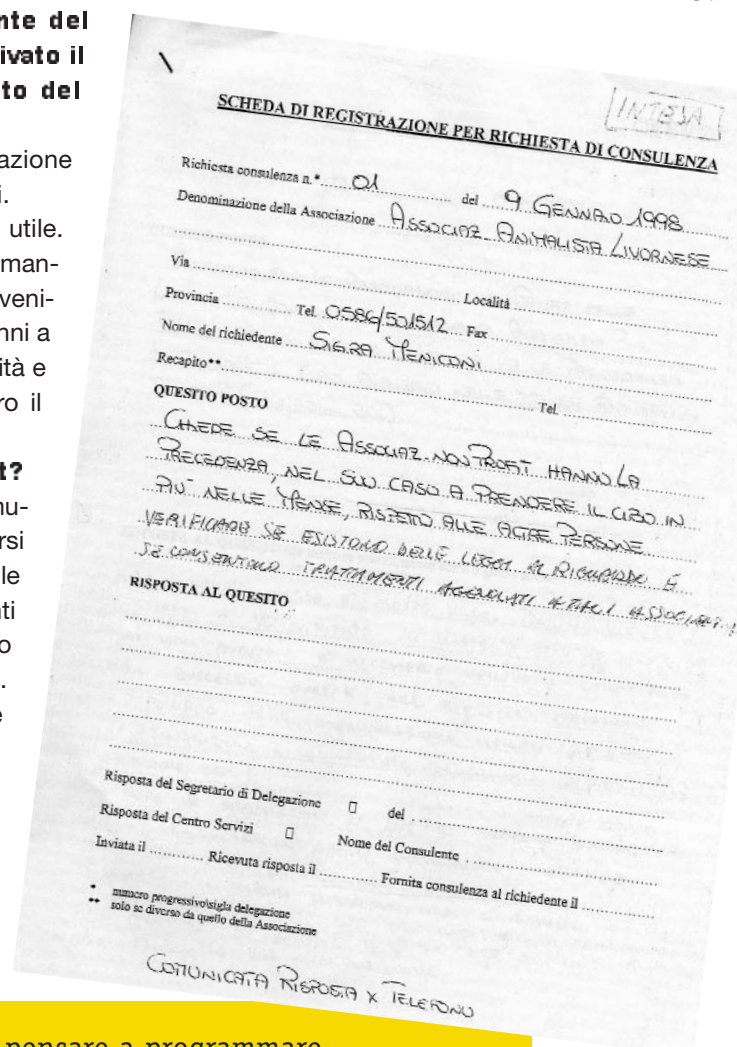 nte del
ivato il
to del
azione
i.
utile.
man-
veni-
nni a
ità e
ro il
t?
nu-
rsi
le
ti
o
.
e
INTESA
SCHEDA DI REGISTRAZIONE PER RICHIESTA DI CONSULENZA
Richiesta consulenza n.* 01 del 9 GENNAIO 1998
Denominazione della Associazione ASSOCIAZ. ANIMALISTA LIVORNESE
Via Località
Provincia Tel. 0586/501512 Fax
Nome del richiedente SIG.RA MENICONI
Recapito** Tel.
QUESITO POSTO
CHIEDE SE LE ASSOCIAZ. NON PROFIT HANNO LA
PRECEDENZA, NEL SUO CASO A PRENDERE IL CIBO IN
PIU' NELLE MENSE, RISPETTO ALLE ALTRE PERSONE
VERIFICARE SE ESISTONO DELLE LEGGI AL RIGUARDO E
SE CONSENTONO TRATTAMENTI AGEVOLATI A TALI ASSOCIAZ.
RISPOSTA AL QUESITO
Risposta del Segretario di Delegazione □ del
Risposta del Centro Servizi □ Nome del Consulente
Inviata il ............ Ricevuta risposta il ............ Fornita consulenza al richiedente il ............
* numero progressivo\sigla delegazione
** solo se diverso da quello della Associazione
COMUNICATA RISPOSTA X TELEFONO
pensare a programmare